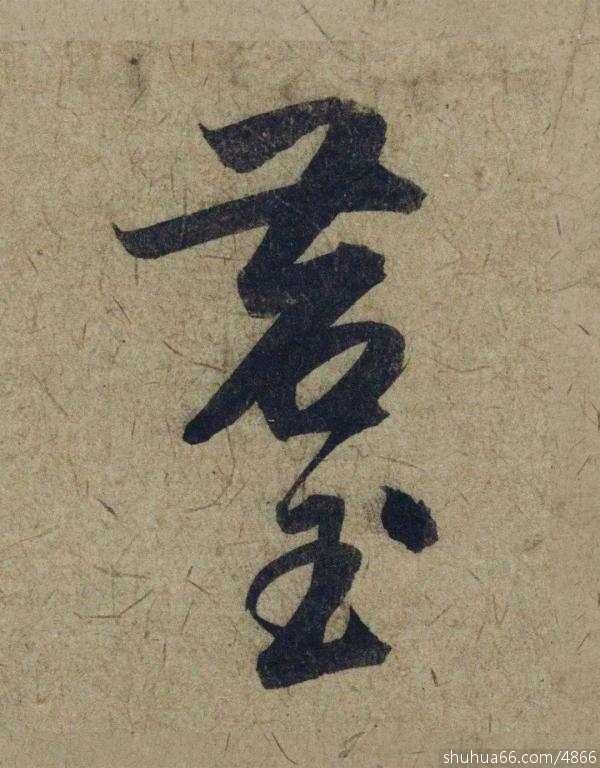 君玉
shuhua66.com/4866